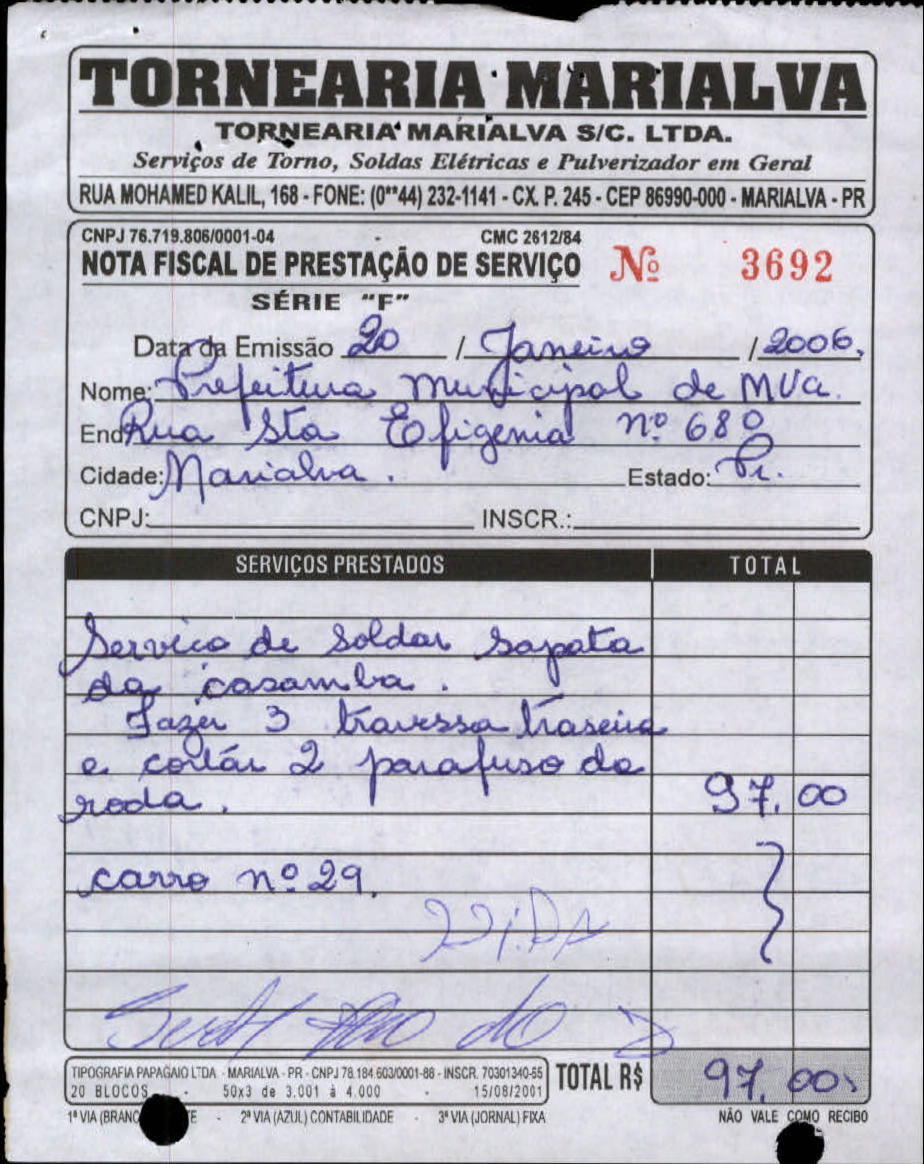 TORNEARIA MARIALVA
TORNEARIA MARIALVA S/C. LTDA.
Serviços de Torno, Soldas Elétricas e Pulverizador em Geral
RUA MOHAMED KALIL, 168 - FONE: (0**44) 232-1141 - CX. P. 245 - CEP 86990-000 - MARIALVA - PR
CNPJ 76.719.806/0001-04 CMC 2612/84
NOTA FISCAL DE PRESTAÇÃO DE SERVIÇO Nº 3692
SÉRIE "F"
Data da Emissão 20 / Janeiro / 2006.
Nome: Prefeitura Municipal de MVa.
End Rua Sta Efigenia nº 680
Cidade: Marialva. Estado: Pr.
CNPJ: INSCR.:
SERVIÇOS PRESTADOS TOTAL
Servico de Soldar Sapata
da casamba.
Fazer 3 travessa traseira
e cortár 2 parafuso da
roda. 97,00
carro nº 29.
TIPOGRAFIA PAPAGAIO LTDA. - MARIALVA - PR - CNPJ 78.184.603/0001-88 - INSCR. 70301340-55
20 BLOCOS - 50x3 de 3.001 à 4.000 - 15/08/2001
TOTAL R$ 97,00
1ª VIA (BRANC - 2ª VIA (AZUL) CONTABILIDADE - 3ª VIA (JORNAL) FIXA
NÃO VALE COMO RECIBO